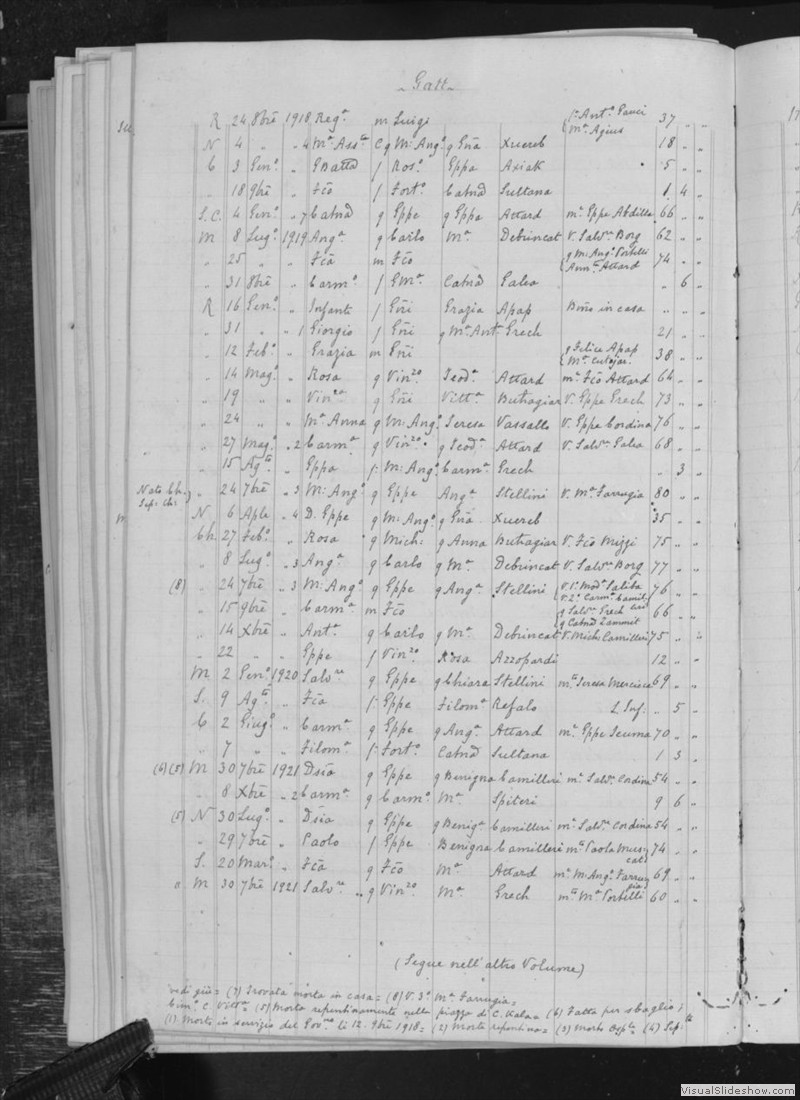 Gatt
R 24 8bre 1918 Reg.a m Luigi { f. Ant.o Gauci 37 " "
{ M.a Agius
N 4 " " 4 M.a Ass.ta C g M: Ang.o g Gña Xuereb 18 " "
C 3 Gen.o " GBatta f Ros.o Eppa Axiak " 5 "
" 18 9bre " Fcō f Fort.o Catnā Sultana 1 4 "
S.C. 4 Gen.o " 7 Catnā g Eppe g Eppa Attard m.e Eppe Abdilla 66 " "
M 8 Lug.o 1919 Ang.a g Carlo M.a Debrincat V. Salv.re Borg 62 " "
" 25 " " Fcā m Fcō { g M: Ang.o Portelli 74 " "
{ Ann.ta Attard
" 31 8bre " Carm.o f GM.a Catnā Galea " 6 "
R 16 Gen.o " Infante f Gñi Grazia Apap Bñō in casa " " "
" 31 " " 1 Giorgio f Gñi g M.a Ant. Grech 21 " "
" 12 Feb.o " Grazia m Gñi { g Felice Apap 38 " "
{ M.a Cutajar
" 14 Mag.o " Rosa g Vin.zo Teod.a Attard m.e Fcō Attard 64 " "
" 19 " " Vin.za g Gñi Vitt.a Buttagiar V. Eppe Grech 73 " "
" 24 " " M.a Anna g M: Ang.o Teresa Vassallo V. Eppe Cordina 76 " "
" 27 Mag.o " 2 Carm.a g Vin.zo g Teod.a Attard V. Salv.re Galea 68 " "
" 15 Ag.to " Eppa f: M: Ang.o Carm.a Grech " 3 "
Nato Ch.
Sep. ch: ) " 24 7bre " 3 M: Ang.o g Eppe Ang.a Stellini V. M.a Farrugia 80 " "
M. N 6 Aple " 4 D. Eppe g M: Ang.o g Gña Xuereb 35 " "
Ch. 27 Feb.o " Rosa g Mich: g Anna Buttagiar V. Fcō Mizzi 75 " "
" 8 Lug.o " 3 Ang.a g Carlo g M.a Debrincat V. Salv.re Borg 77 " "
(8) " 24 7bre " 3 M: Ang.o g Eppe g Ang.a Stellini { V. 1.a Mad.a Saliba 76 " "
{ V. 2.a Carm.a Camilleri
" 15 9bre " Carm.a m Fcō { g Salv.re Grech 66 " "
{ g Catnā Zammit
" 14 Xbre " Ant.a g Carlo g M.a Debrincat V. Mich: Camilleri 75 " "
" 22 " " Eppe f Vin.zo Rosa Azzopardi 12 " "
M 2 Gen.o 1920 Salv.re g Eppe g Chiara Stellini m.a Teresa Mercieca 69 " "
S. 9 Ag.to " Fcā f: Eppe Filom.a Refalo 2 Inf: " 5 "
C 2 Giug.o " Carm.a g Eppe g Ang.a Attard m.e Eppe Scuma 70 " "
" 7 " " Filom.a f: Fort.o Catnā Sultana 1 3 "
(6) (5) M 30 7bre 1921 Dsia g Eppe g Benigna Camilleri m.e Salv.re Cordina 54 " "
" 8 Xbre " 2 Carm.a g Carm.o M.a Spiteri 9 6 "
(5) N 30 Lug.o " Dsia g Eppe g Benig.a Camilleri m.e Salv.re Cordina 54 " "
" 29 7bre " Paolo f Eppe Benigna Camilleri m.a Paola Muscat 74 " "
S. 20 Mar.o " Fcā g Fcō M.a Attard m.e M: Ang.o Farrugia 69 " "
" M 30 7bre 1921 Salv.re " g Vin.zo M.a Grech m.a M.a Portelli 60 " "
(Segue nell'altro Volume)
vedi giù = (7) Trovata morta in casa = (8) V. 3.a M.a Farrugia =
Cim.o C. Vitt.a (5) Morta repentinamente nella piazza di C. Xala = (6) Fatta per sbaglio ;
(1) Morto in servizio del Gov.no li 12. 9bre 1918 = (2) Morta repentina = (3) Morto Osp.le = (4) Sep.to
VisualSlideshow.com